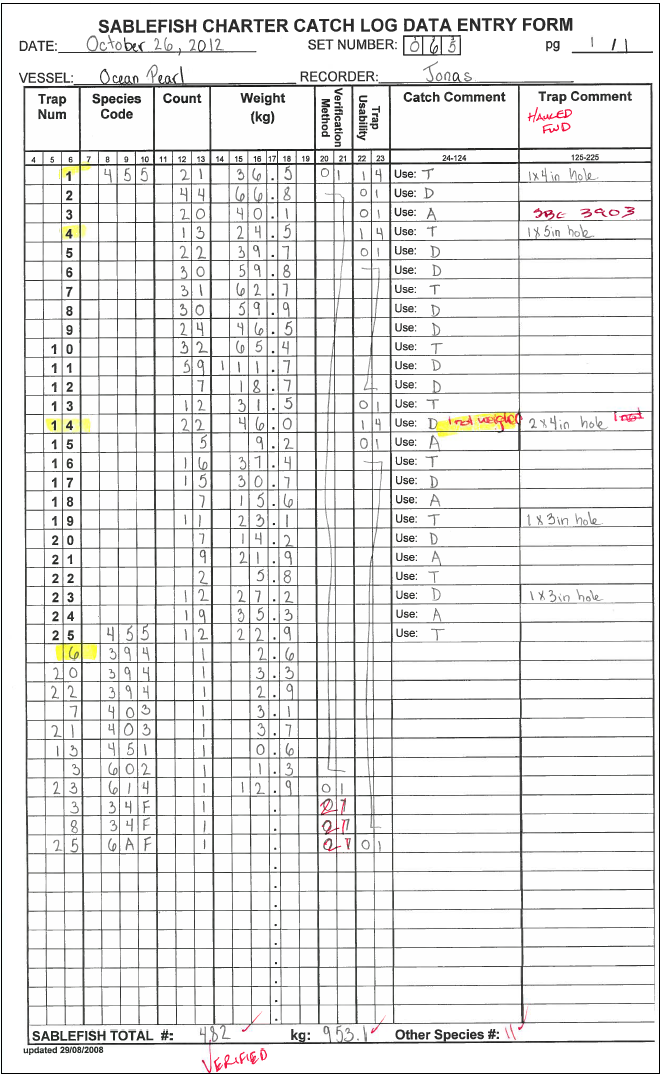 SABLEFISH CHARTER CATCH LOG DATA ENTRY FORM
DATE: October 26, 2012 SET NUMBER: 0 6 5 pg 1 / 1
VESSEL: Ocean Pearl RECORDER: Jonas
Trap Num Species Code Count Weight (kg) Verification Method Trap Usability Catch Comment Trap Comment
HAULED FWD
4 5 6 7 8 9 10 11 12 13 14 15 16 17 18 19 20 21 22 23 24-124 125-225
1 455 21 36.5 01 14 Use: T 1x4in hole
2 44 66.8 01 Use: D
3 20 40.1 01 Use: A SBE 3903
4 13 24.5 14 Use: T 1x5in hole
5 22 39.7 01 Use: D
6 30 59.8 Use: D
7 31 62.7 Use: T
8 30 59.9 Use: D
9 24 46.5 Use: D
10 32 65.4 Use: T
11 59 111.7 Use: D
12 7 18.7 Use: D
13 12 31.5 01 Use: T
14 22 46.0 14 Use: D 1 not weighed 2x4in hole
15 5 9.2 01 Use: A
16 16 37.4 Use: T
17 15 30.7 Use: D
18 7 15.6 Use: A
19 11 23.1 Use: T 1x3in hole
20 7 14.2 Use: D
21 9 21.9 Use: A
22 2 5.8 Use: T
23 12 27.2 Use: D 1x3in hole
24 19 35.3 Use: A
25 455 12 22.9 Use: T
6 394 1 2.6
20 394 1 3.3
22 394 1 2.9
7 403 1 3.1
21 403 1 3.7
13 451 1 0.6
3 602 1 1.3
23 614 1 12.9 01
3 34F 1 . 21
8 34F 1 . 21
25 6AF 1 . 21 01
SABLEFISH TOTAL #: 482 kg: 953.1 Other Species #: 11
updated 29/08/2008
VERIFIED